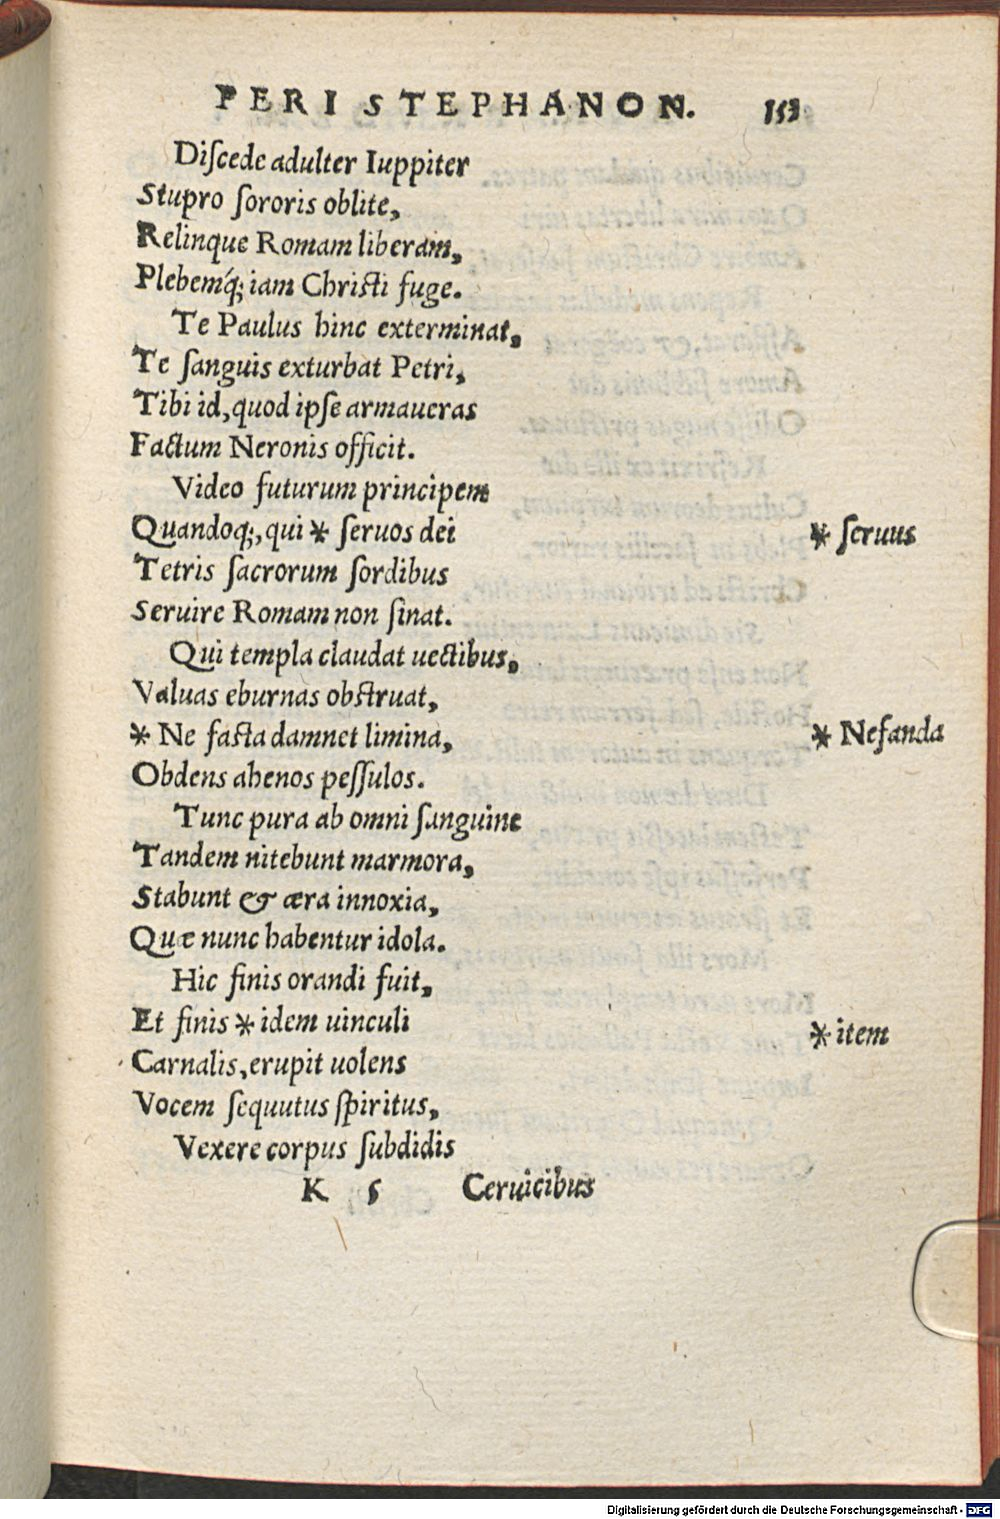 PERI STEPHANON. 153
Diſcede adulter Iuppiter
Stupro ſororis oblite,
Relinque Romam liberam,
Plebemq́; iam Chriſti fuge.
Te Paulus hinc exterminat,
Te ſanguis exturbat Petri,
Tibi id, quod ipſe armaueras
Factum Neronis officit.
Video futurum principem
Quandoq;, qui * ſeruos dei
* ſeruus
Tetris ſacrorum ſordibus
Seruire Romam non ſinat.
Qui templa claudat uectibus,
Valuas eburnas obſtruat,
* Ne faſta damnet limina,
* Nefanda
Obdens ahenos peſſulos.
Tunc pura ab omni ſanguine
Tandem nitebunt marmora,
Stabunt & æra innoxia,
Quæ nunc habentur idola.
Hic finis orandi fuit,
Et finis * idem uinculi
* item
Carnalis, erupit uolens
Vocem ſequutus ſpiritus,
Vexere corpus ſubdidis
K 5 Ceruicibus
Digitalisierung gefördert durch die Deutsche Forschungsgemeinschaft - DFG